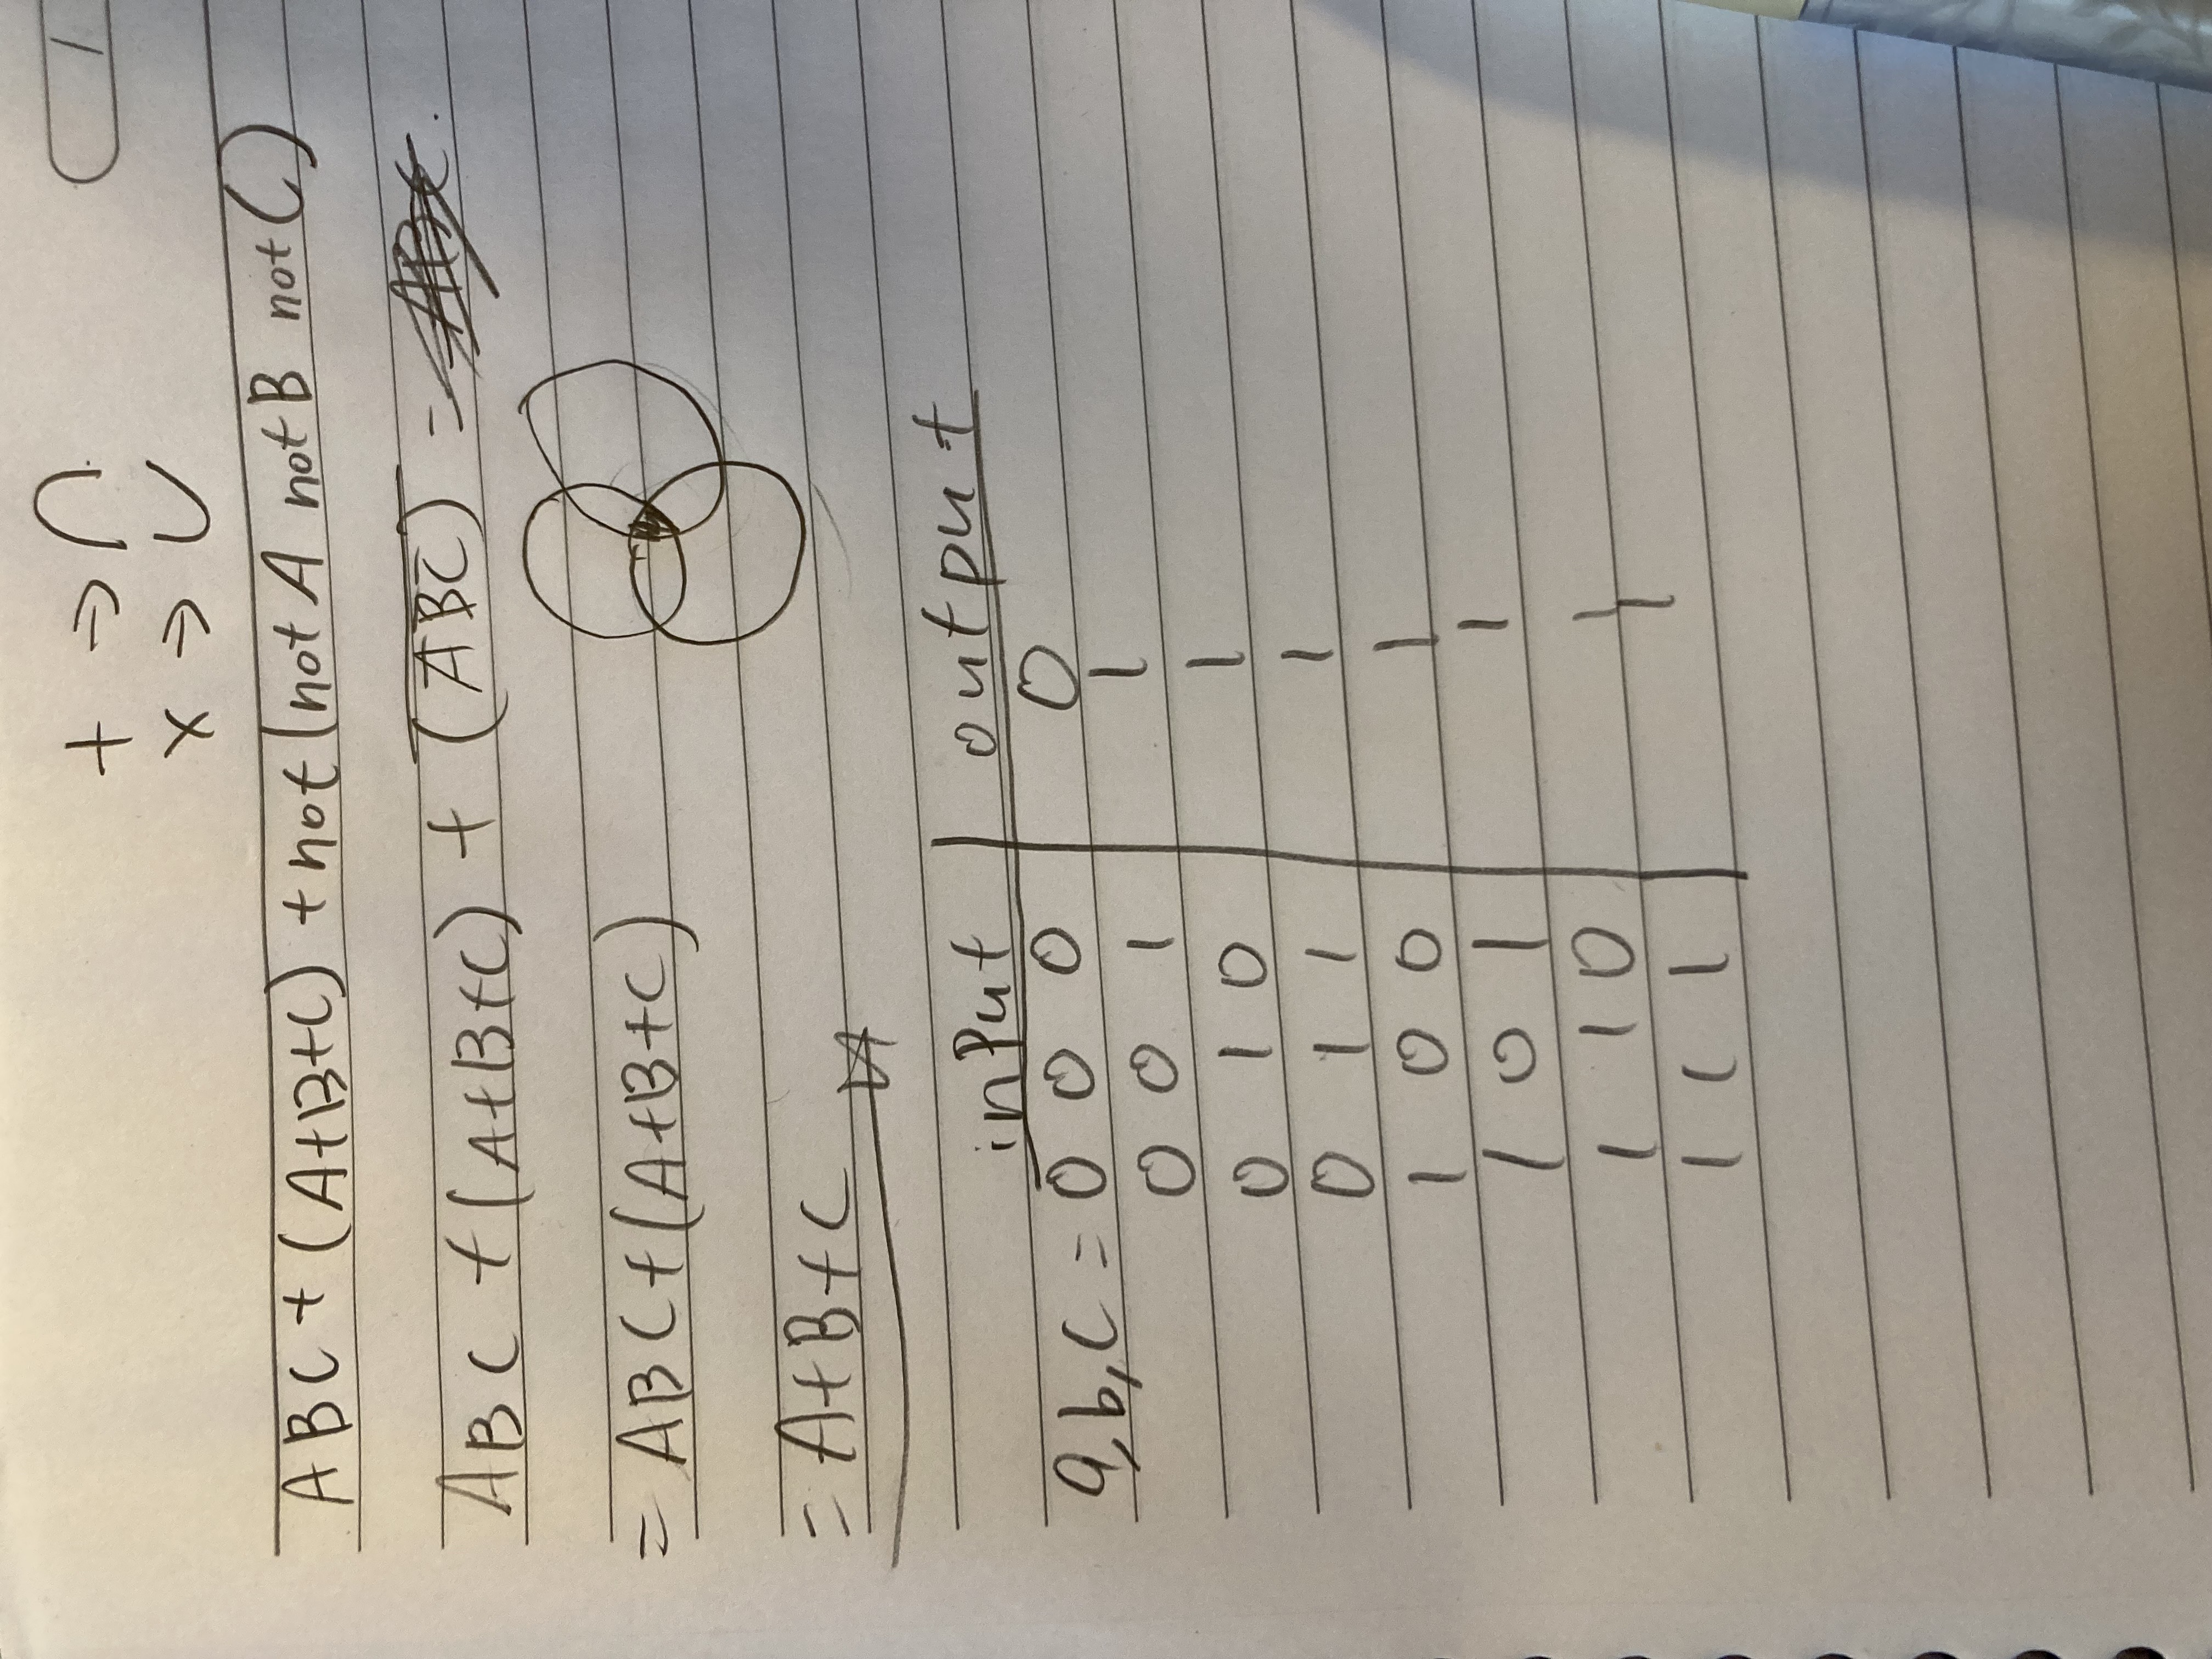 + → ∩
1
x → ∪
ABC + (A+B+C) + not (not A not B not C)
ABC + (A+B+C) + (A̅B̅C̅)̅ = ABC.
= ABC + (A+B+C)
= A+B+C
input | output
a,b,c = 0 0 0 | 0
0 0 1 | 1
0 1 0 | 1
0 1 1 | 1
1 0 0 | 1
1 0 1 | 1
1 1 0 | 1
1 1 1 | 1